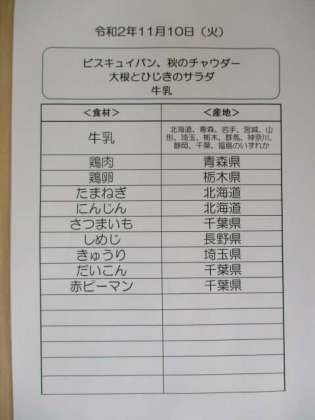 令和2年11月10日（火）
ビスキュイパン、秋のチャウダー
大根とひじきのサラダ
牛乳
＜食材＞ ＜産地＞
牛乳 北海道、青森、岩手、宮城、山
形、埼玉、栃木、群馬、神奈川、
静岡、千葉、福島のいずれか
鶏肉 青森県
鶏卵 栃木県
たまねぎ 北海道
にんじん 北海道
さつまいも 千葉県
しめじ 長野県
きゅうり 埼玉県
だいこん 千葉県
赤ピーマン 千葉県